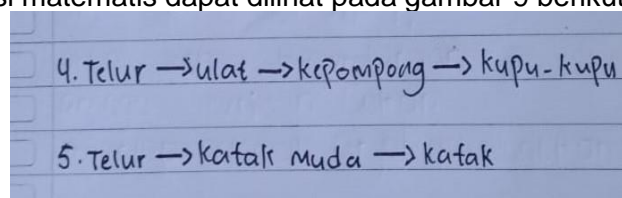 si matematis dapat dilihat pada gambar 9 berikut
4. Telur → ulat → kepompong → kupu-kupu
5. Telur → katak muda → katak